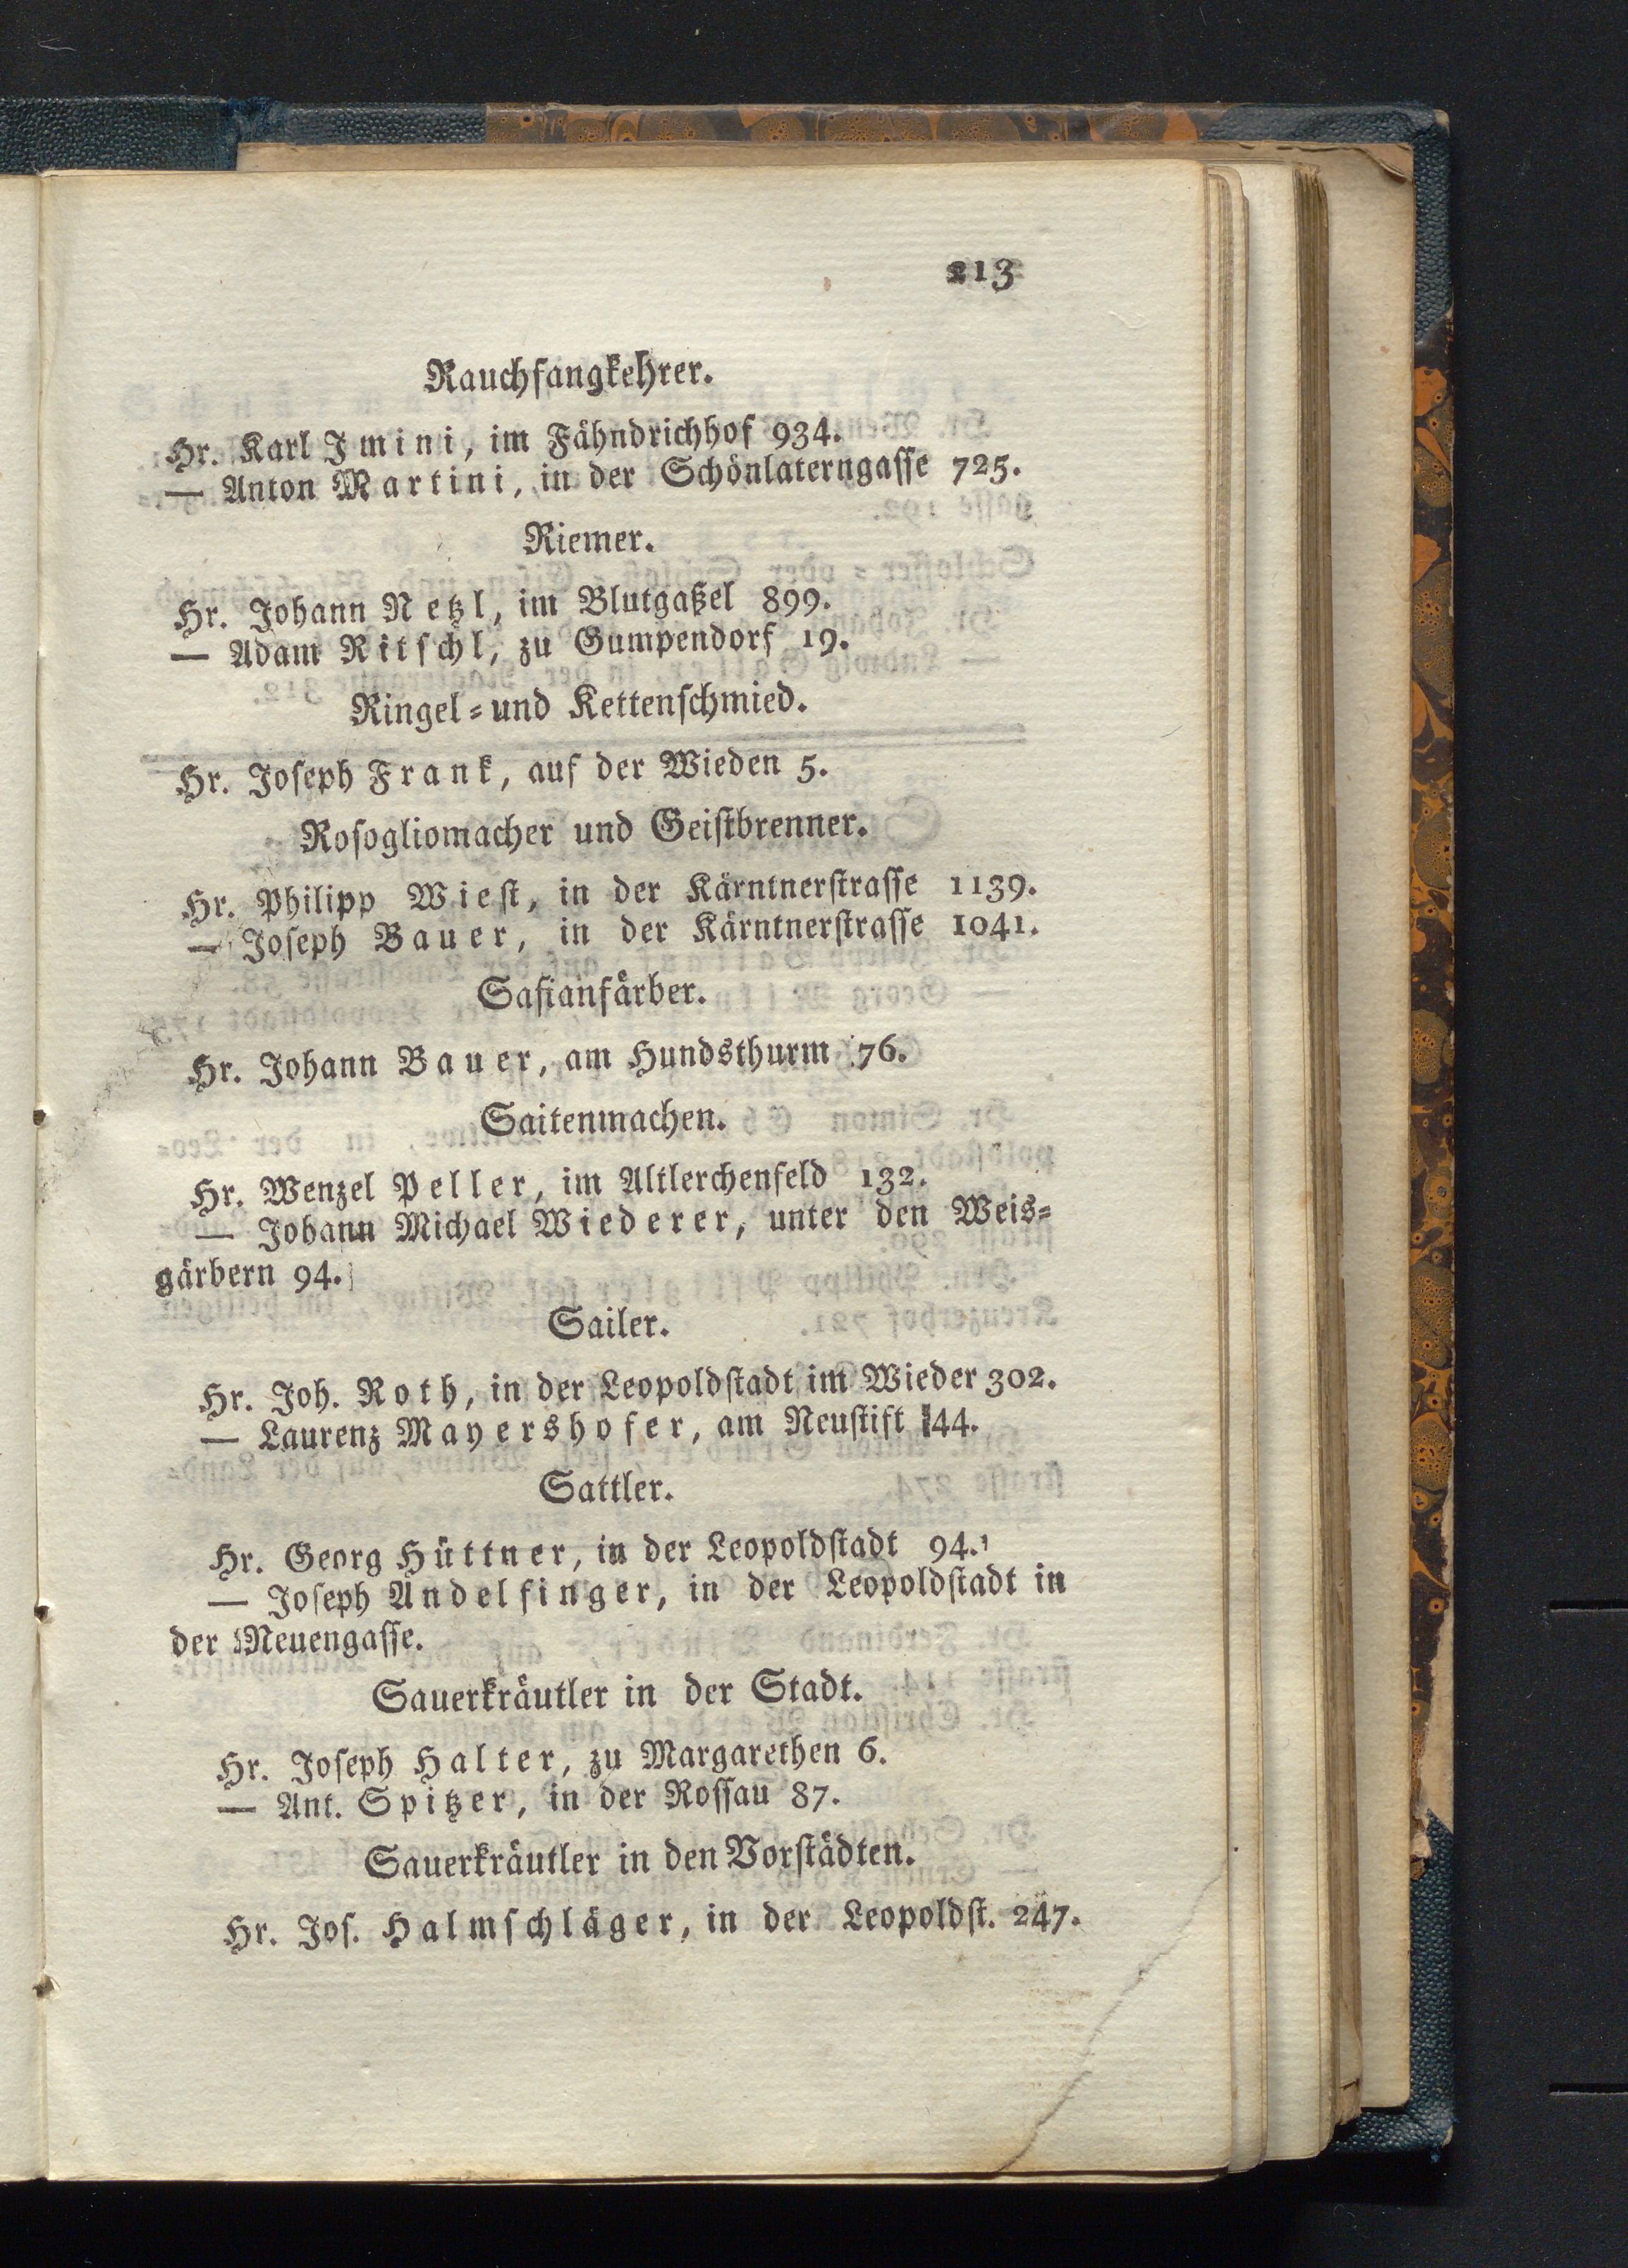 213
Rauchfangkehrer.
Hr. Karl Imini, im Fähndrichhof 934.
— Anton Martini, in der Schönlaterngasse 725.
Riemer.
Hr. Johann Netzl, im Blutgaßel 899.
— Adam Ritschl, zu Gumpendorf 19.
Ringel- und Kettenschmied.
Hr. Joseph Frank, auf der Wieden 5.
Rosogliomacher und Geistbrenner.
Hr. Philipp Wiest, in der Kärntnerstrasse 1139.
— Joseph Bauer, in der Kärntnerstrasse 1041.
Safianfärber.
Hr. Johann Bauer, am Hundsthurm 76.
Saitenmachen.
Hr. Wenzel Peller, im Altlerchenfeld 132.
— Johann Michael Wiederer, unter den Weis-
gärbern 94.
Sailer.
Hr. Joh. Roth, in der Leopoldstadt im Wieder 302.
— Laurenz Mayershofer, am Neustift 44.
Sattler.
Hr. Georg Hüttner, in der Leopoldstadt 94.
— Joseph Andelfinger, in der Leopoldstadt in
der Neuengasse.
Sauerkräutler in der Stadt.
Hr. Joseph Halter, zu Margarethen 6.
— Ant. Spitzer, in der Rossau 87.
Sauerkräutler in den Vorstädten.
Hr. Jos. Halmschläger, in der Leopoldst. 247.